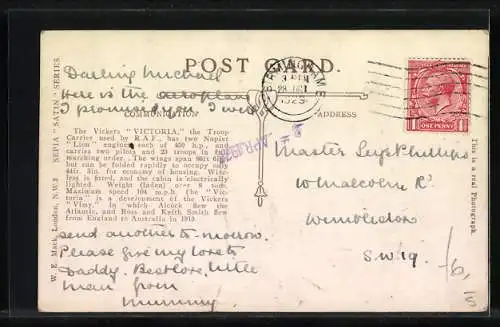 POST CARD.
Darling Michael
Here is the aeroplane
I promised you. I will
COMMUNICATION
ADDRESS
The Vickers "VICTORIA," the Troop
Carrier used by R.A.F., has two Napier
"Lion" engines, each of 450 h.p., and
carries two pilots and 23 troops in full
marching order. The wings span 86ft 6in.
but can be folded rapidly to occupy only
44ft. 8in. for economy of housing. Wire-
less is fitted, and the cabin is electrically
lighted. Weight (laden) over 8 tons.
Maximum speed 104 m.p.h. The "Vic-
toria" is a development of the Vickers
"Vimy," in which Alcock flew the
Atlantic, and Ross and Keith Smith flew
from England to Australia in 1919.
send another to-morrow.
Please give my love to
Daddy. Best love, little
man from
Mummy
Master
Malcolm Rd
Wimbledon
S.W.19
BIRMINGHAM
1929
POSTAGE
ONE PENNY
W. E. Mack, London, N.W.3 SEPIA "SATIN" SERIES.
This is a real Photograph.